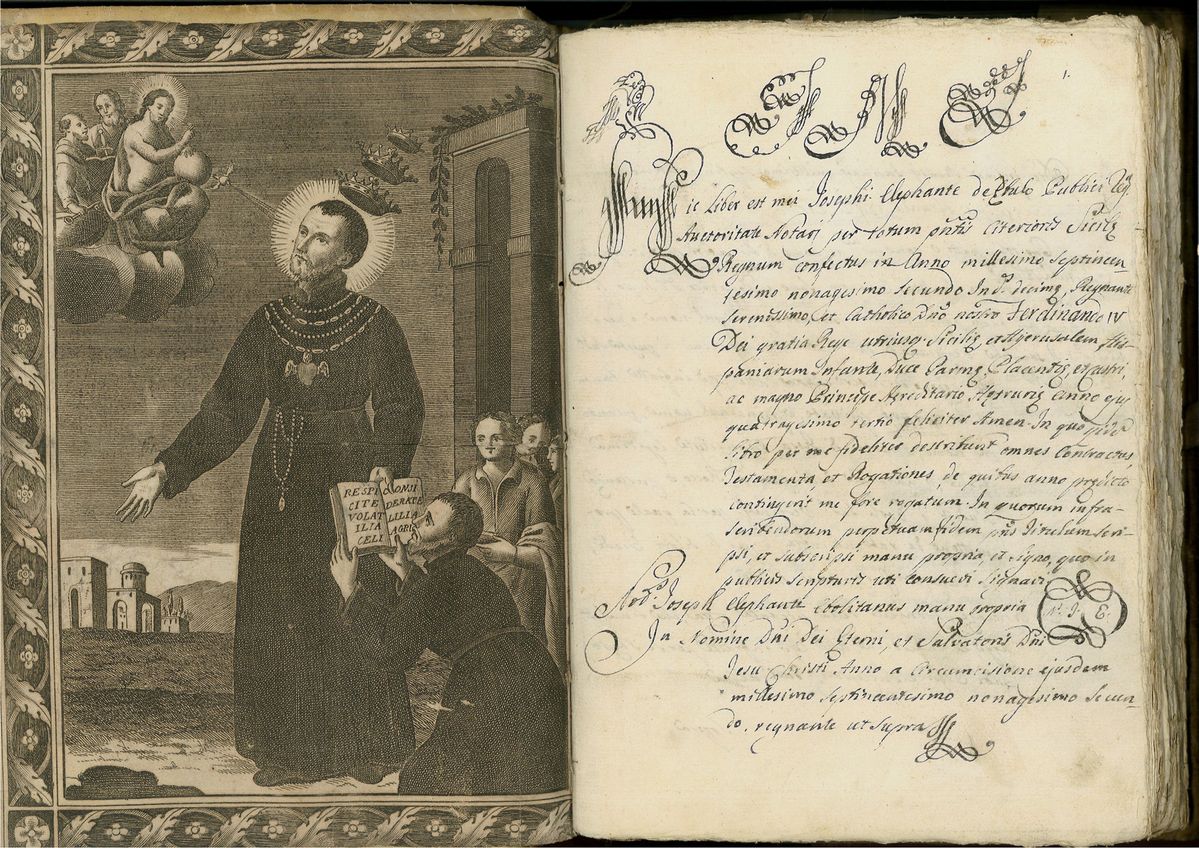 RESPI
CITE
VOLAT
ILIA
CELI
CONSI
DERATE
LILIA
AGRI
1.
J M J
Hic Liber est mei Josephi Elephante de Ebulo Publici Reg.
Auctoritate Notarj per totum pntis Citerioris Sicilię
Regnum confectus in Anno millesimo septincen-
tesimo nonagesimo secundo Ind. decima, Regnante
Serenissimo, et Catholico Dno nostro Ferdinando IV
Dei gratia Rege utriusq; Sicilię, et Hyerusalem, His-
paniarum Infante, Duce Parmę, Placentię, et Castri,
ac magno Principe Hereditario Hetrurię anno ejus
quatragesimo tertio feliciter Amen. In quo pnti
libro per me fideliter describunt omnes Contractus
Testamenta et Rogationes de quibus anno predicto
contingerit me fore rogatum. In quorum infra-
scribendorum perpetuam fidem pns Titulum scri-
psi, et subscripsi manu propria, et signo, quo in
publicis scripturis uti consuevi signavi
Not. Joseph Elephante Ebolitanus manu propria
N. J. E.
In Nomine Dni Dei Eterni, et Salvatoris Dni
Jesu Christi Anno a Circumcisione ejusdem
millesimo septincentesimo nonagesimo secun-
do, regnante ut supra